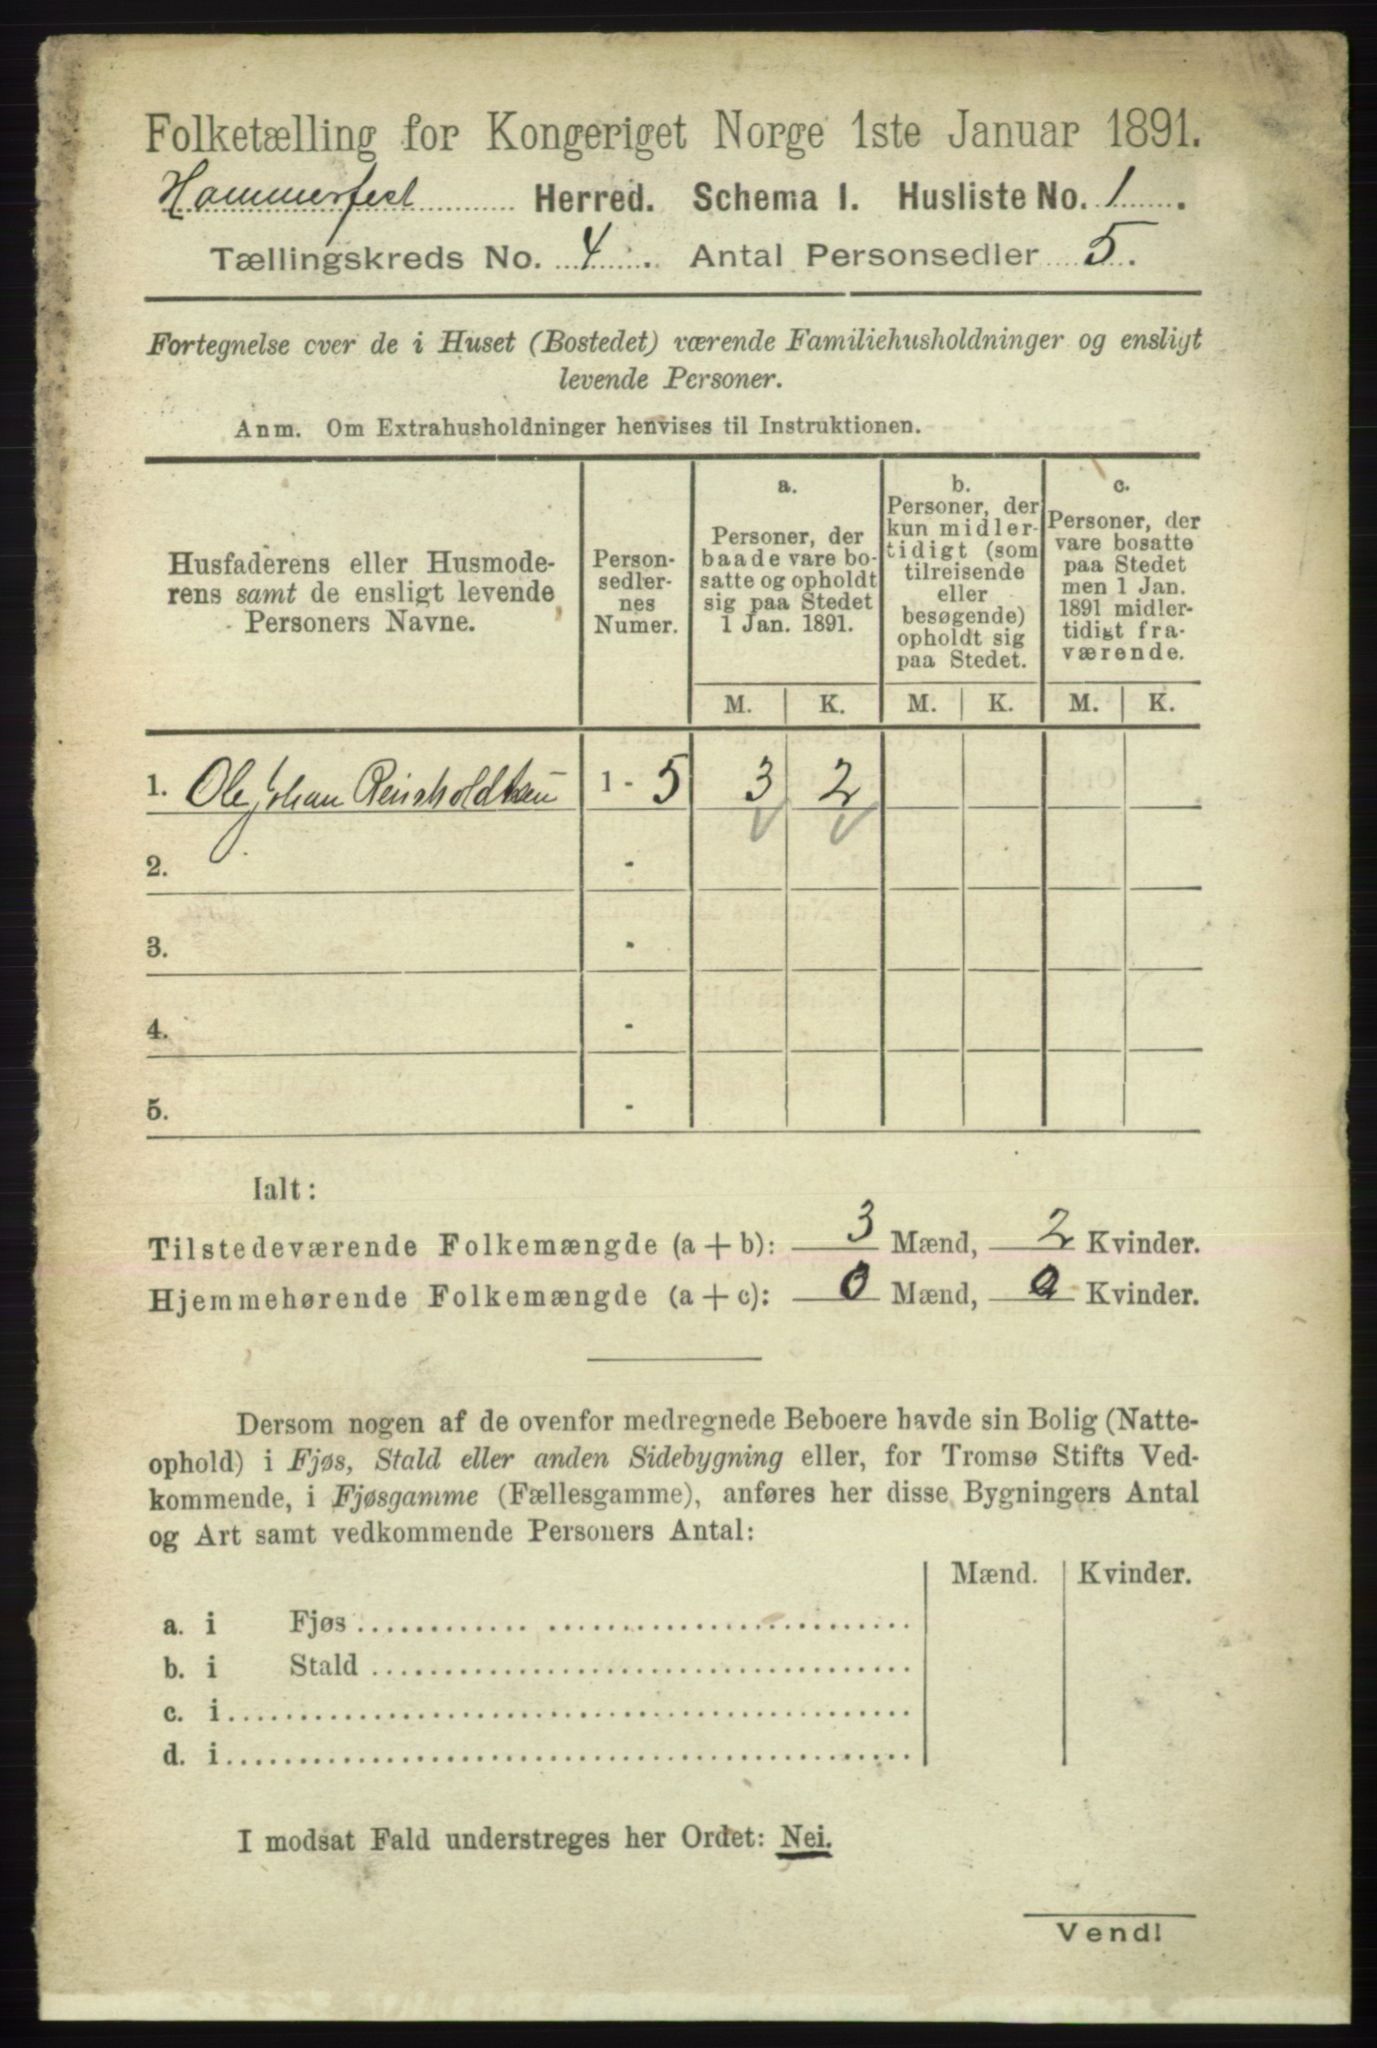 Folketælling for Kongeriget Norge 1ste Januar 1891.
Hammerfest Herred. Schema I. Husliste No. 1.
Tællingskreds No. 4. Antal Personsedler 5.
Fortegnelse over de i Huset (Bostedet) værende Familiehusholdninger og ensligt
levende Personer.
Anm. Om Extrahusholdninger henvises til Instruktionen.
Husfaderens eller Husmode-
rens samt de ensligt levende
Personers Navne.
Person-
sedler-
nes
Numer.
a.
Personer, der
baade vare bo-
satte og opholdt
sig paa Stedet
1 Jan. 1891.
b.
Personer, der
kun midler-
tidigt (som
tilreisende
eller
besøgende)
opholdt sig
paa Stedet.
c.
Personer, der
vare bosatte
paa Stedet
men 1 Jan.
1891 midler-
tidigt fra-
værende.
M. K. M. K. M. K.
1. Ole Johan Reinholdtsen 1 - 5 3 2
2. -
3. -
4. -
5. -
Ialt:
Tilstedeværende Folkemængde (a + b): 3 Mænd, 2 Kvinder.
Hjemmehørende Folkemængde (a + c): 0 Mænd, 0 Kvinder.
Dersom nogen af de ovenfor medregnede Beboere havde sin Bolig (Natte-
ophold) i Fjøs, Stald eller anden Sidebygning eller, for Tromsø Stifts Ved-
kommende, i Fjøsgamme (Fællesgamme), anføres her disse Bygningers Antal
og Art samt vedkommende Personers Antal:
Mænd. Kvinder.
a. i Fjøs
b. i Stald
c. i
d. i
I modsat Fald understreges her Ordet: Nei.
Vend!